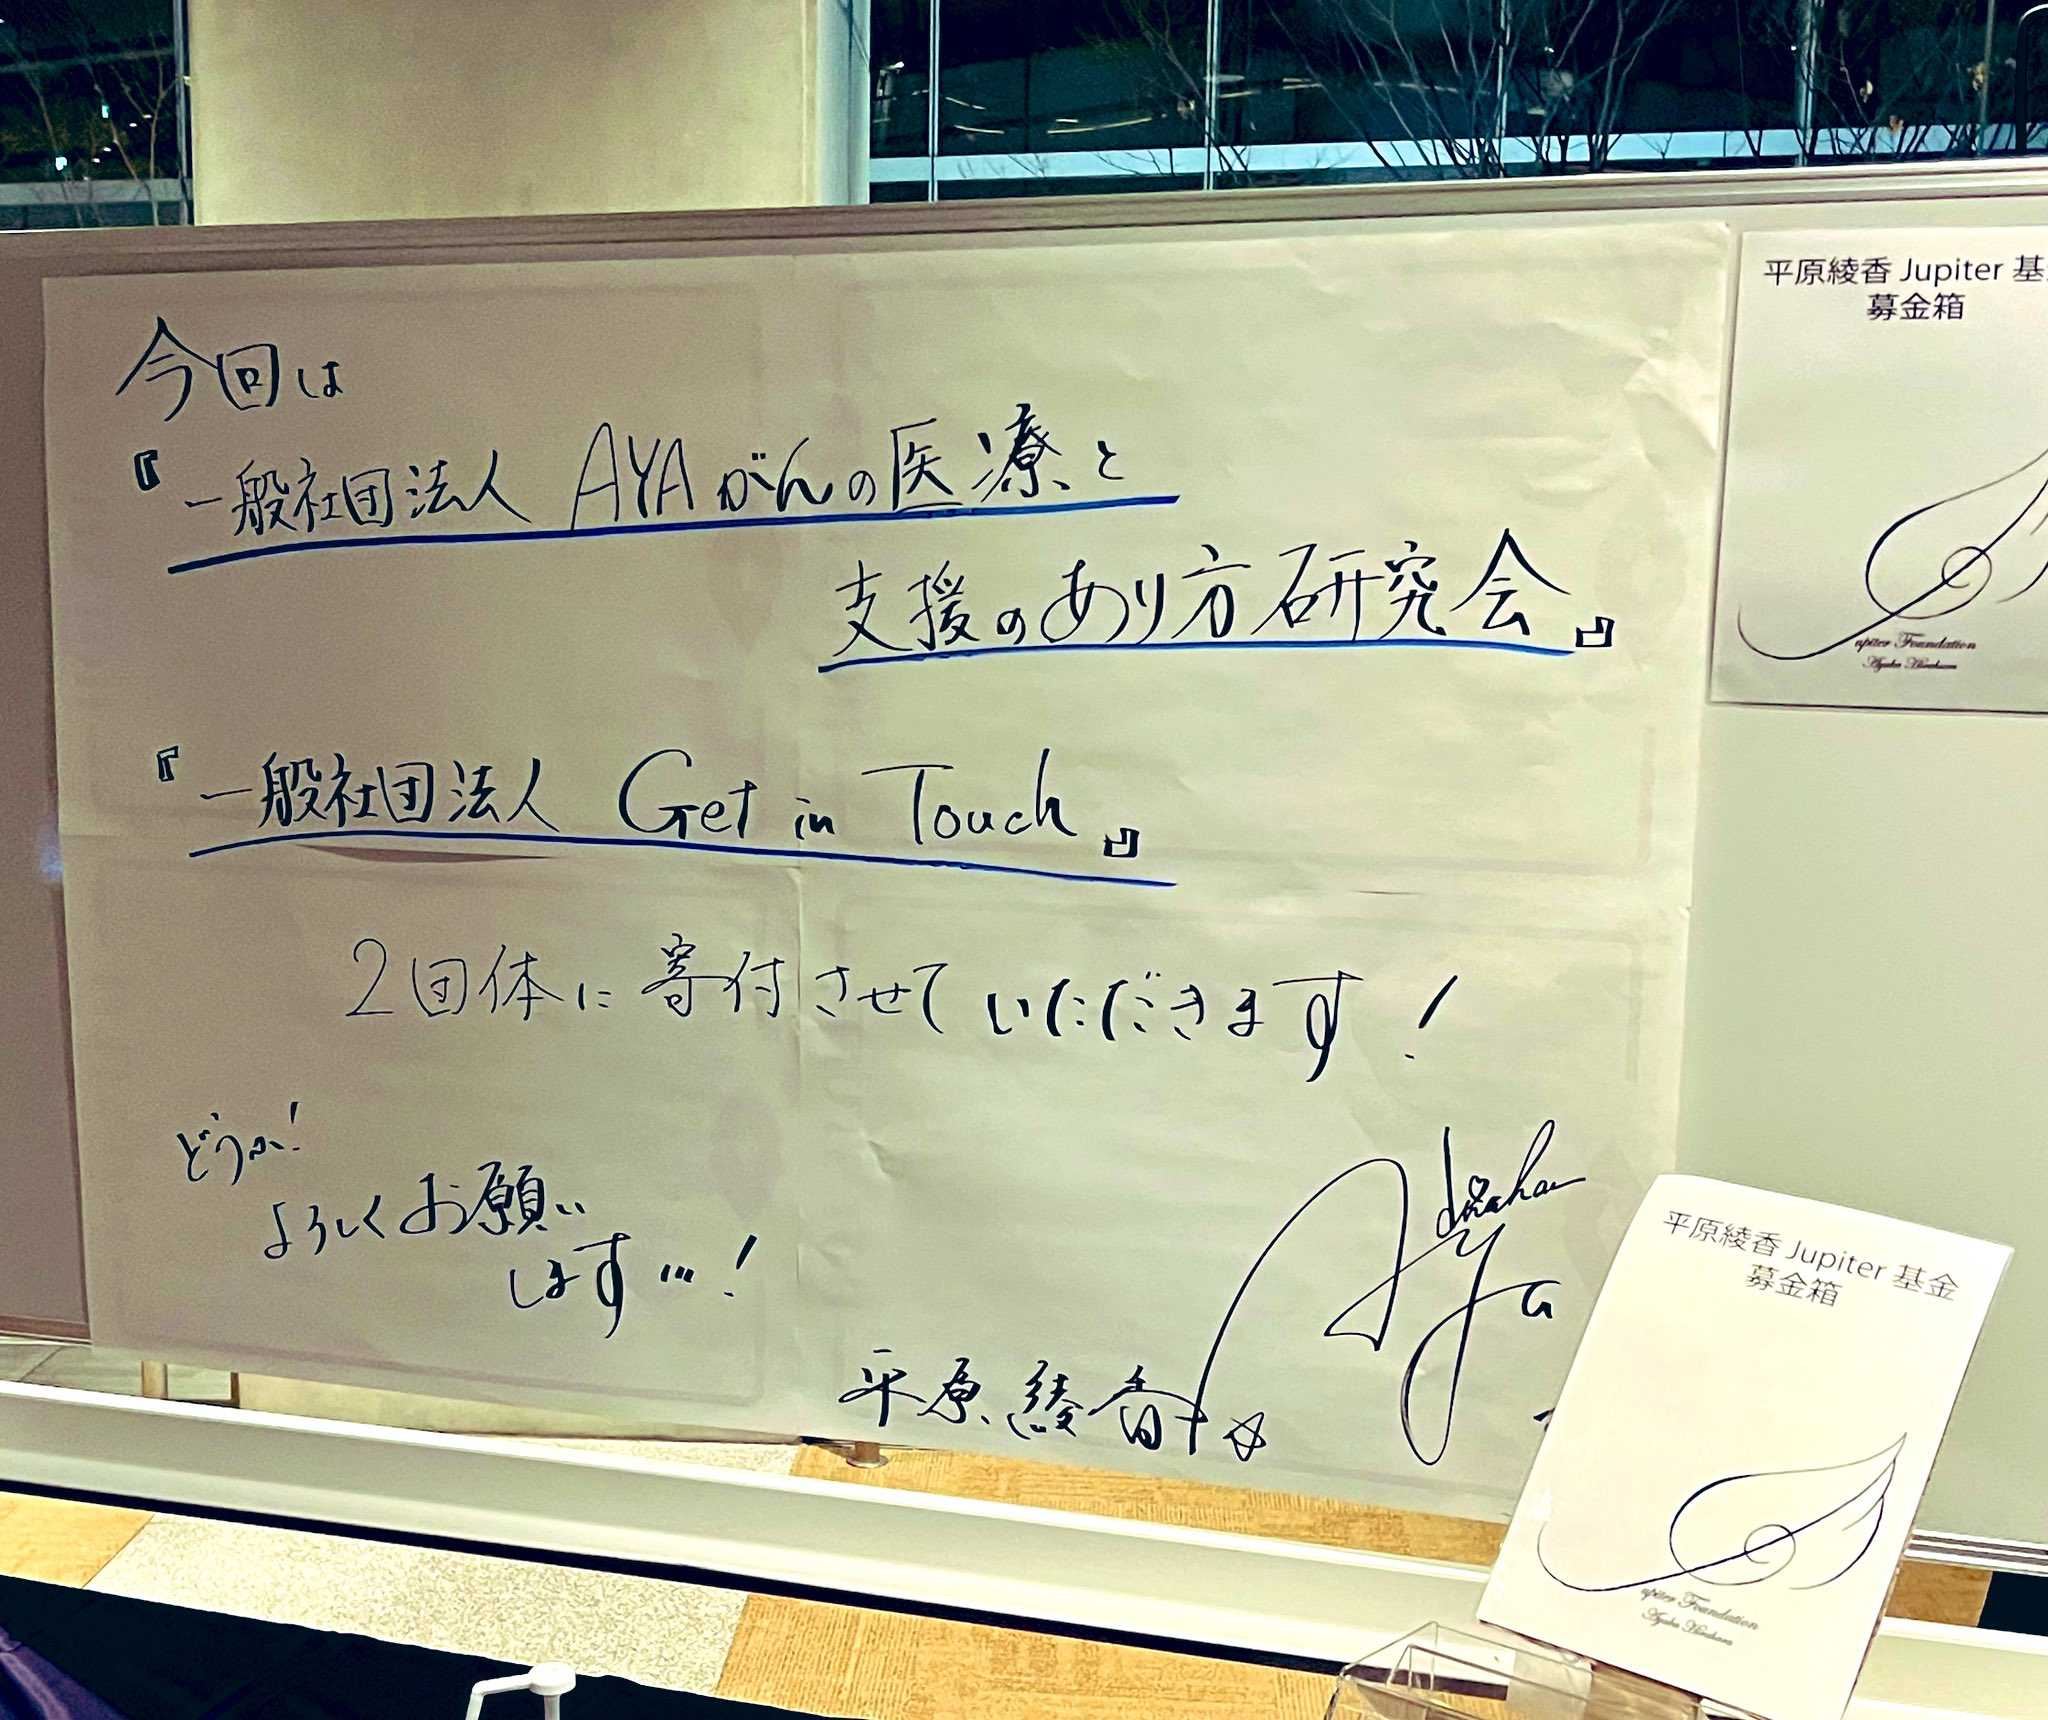 今回は
『一般社団法人 AYAがんの医療と
支援のあり方研究会』
『一般社団法人 Get in Touch』
2団体に寄付させていただきます！
どうか！
よろしくお願い
します…！
平原綾香
Hirahara
Aya
平原綾香 Jupiter 基
募金箱
upiter Foundation
Ayaka Hirahara
平原綾香 Jupiter 基金
募金箱
upiter Foundation
Ayaka Hirahara